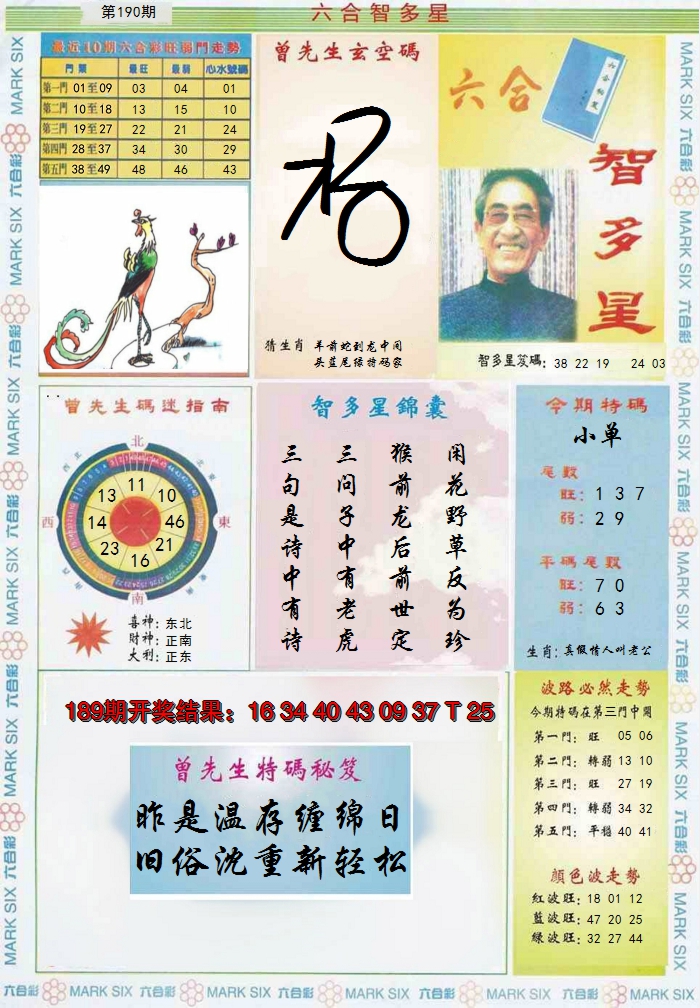 第190期
六合智多星
最近10期六合彩旺弱門走勢
門類 最旺 最弱 心水號碼
第一門 01至09 03 04 01
第二門 10至18 13 15 10
第三門 19至27 22 21 24
第四門 28至37 34 30 29
第五門 38至49 48 46 43
曾先生玄空碼
猜生肖 羊前蛇到龙中间
头蓝尾绿特码家
六合
六合秘笈
智多星
智多星笈碼: 38 22 19 24 03
曾先生碼迷指南
北
西北
東北
11
13 10
西 14 46 東
23 21
16
西南
東南
南
喜神: 东北
財神: 正南
大利: 正东
智多星錦囊
闲花野草反为珍
猴前龙后前世定
三问子中有老虎
三句是诗中有诗
今期特碼
小单
尾數
旺: 1 3 7
弱: 2 9
平碼尾數
旺: 7 0
弱: 6 3
生肖: 真假情人叫老公
189期开奖结果: 16 34 40 43 09 37 T 25
曾先生特碼秘笈
昨是温存缠绵日
旧俗沈重新轻松
波路必然走勢
今期特碼在第三門中開
第一門: 旺 05 06
第二門: 轉弱 13 10
第三門: 旺 27 19
第四門: 轉弱 34 32
第五門: 平穩 40 41
顏色波走勢
紅波旺: 18 01 12
藍波旺: 47 20 25
綠波旺: 32 27 44
MARK SIX 六合彩